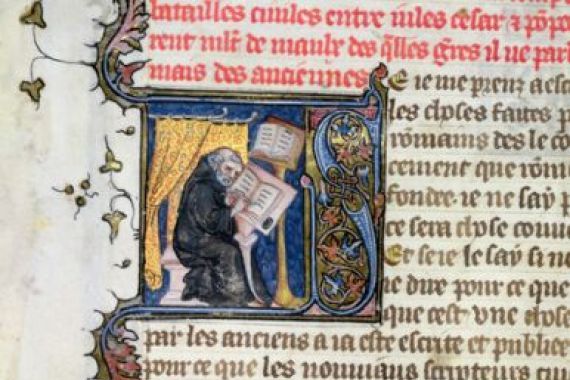 batailles ciuiles entre iules cesar & põpo
rent ml̃t de maulx des q̃lles gr̃es il ne par
mais des anciennes
S E ie me prenz a esc
les choses faites p
rõmains des le co
cement que rõm
fondee. ie ne say p
ce sera chose couue
Et se ie le say si n
ie dire pour ce que
que cest vne chose
par les anciens a ia este escrite et publie
pour ce que les nouuiaus scripteurs cui